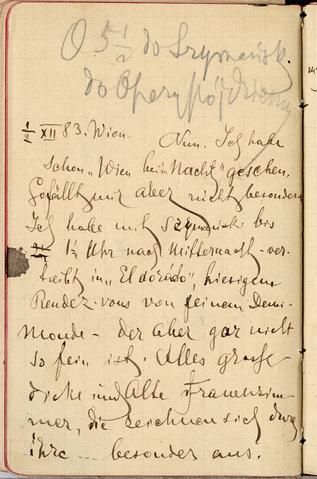 O 5 1/2 do Szymańsk.
do Opery pójdziemy
1/2 XII 83. Wien. Nun. Ich habe
schon „Wien bei Nacht" gesehen.
Gefällt mir aber nicht besonders
Ich habe mit Szymański bis
1/2 Uhr nach Mitternacht ver-
treibt in „Eldorado", hiesigem
Rendez-vous von feinem Demi-
monde - der aber gar nicht
so fein ist. Alles große
dicke und alte Frauenzim-
mer, die zeichnen sich durch
ihre ... besonder aus.